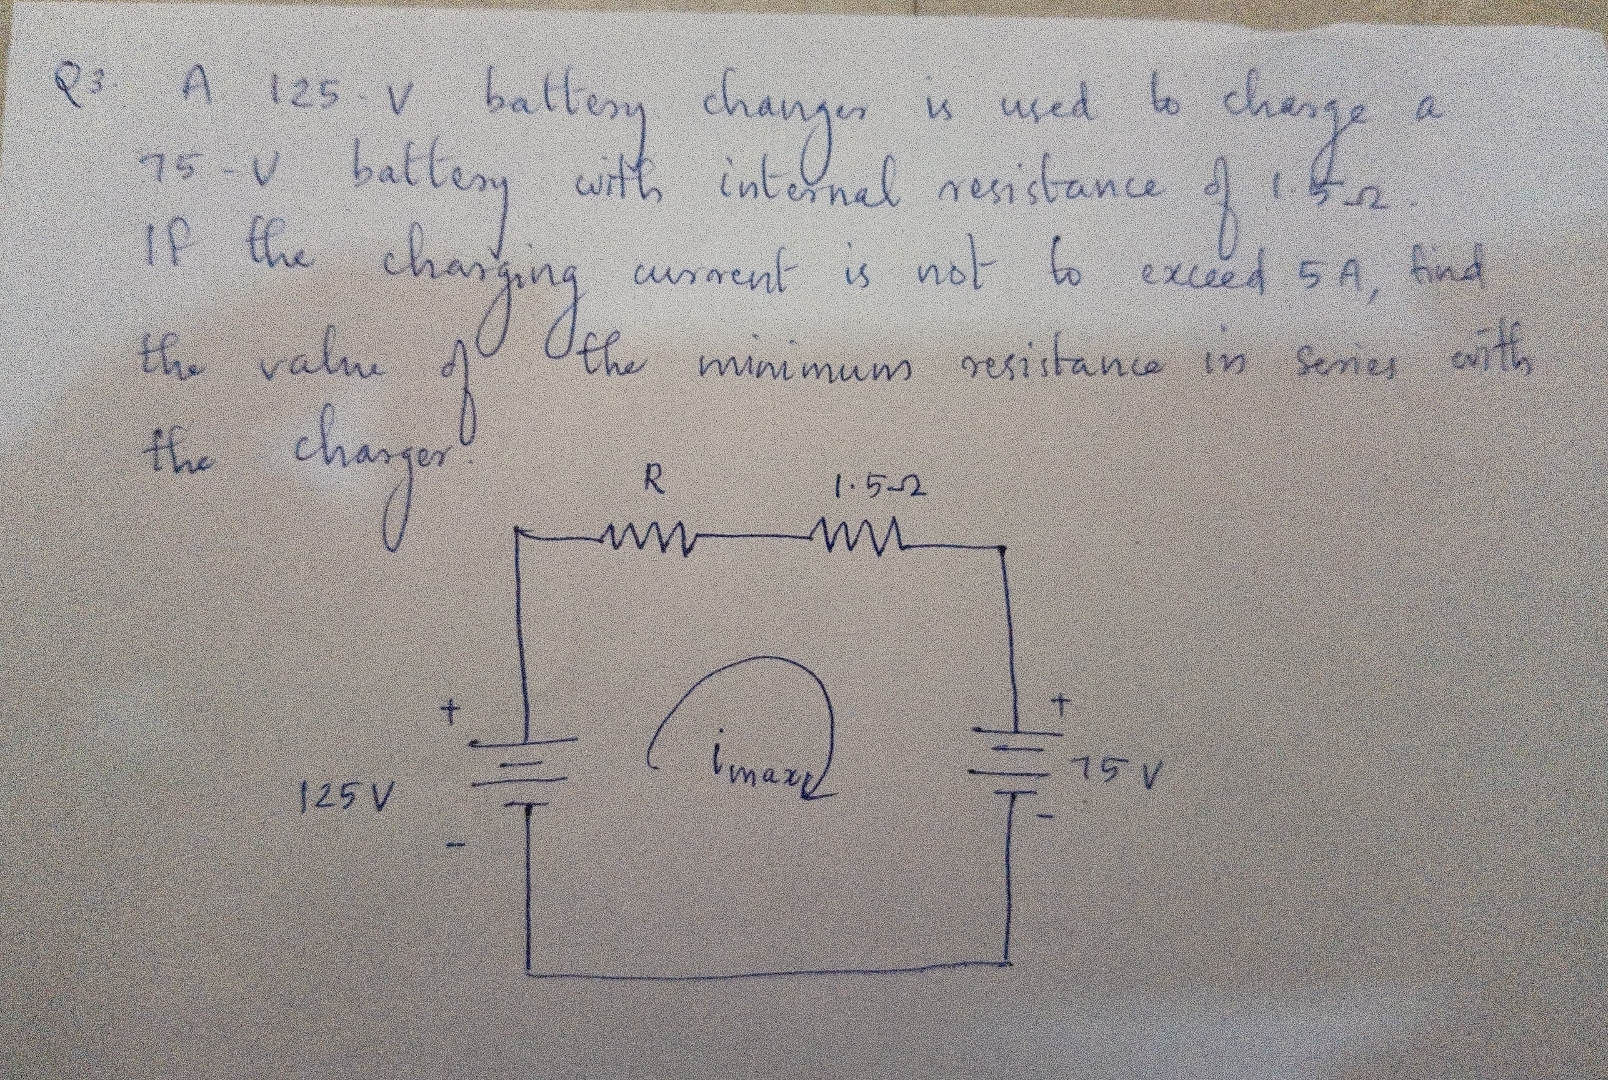 Q3. A 125-V battery charger is used to charge a
75-V battery with internal resistance of 1.5Ω.
If the charging current is not to exceed 5A, find
the value of the minimum resistance in series with
the charger.
R 1.5Ω
+ +
125V imax 75V
- -